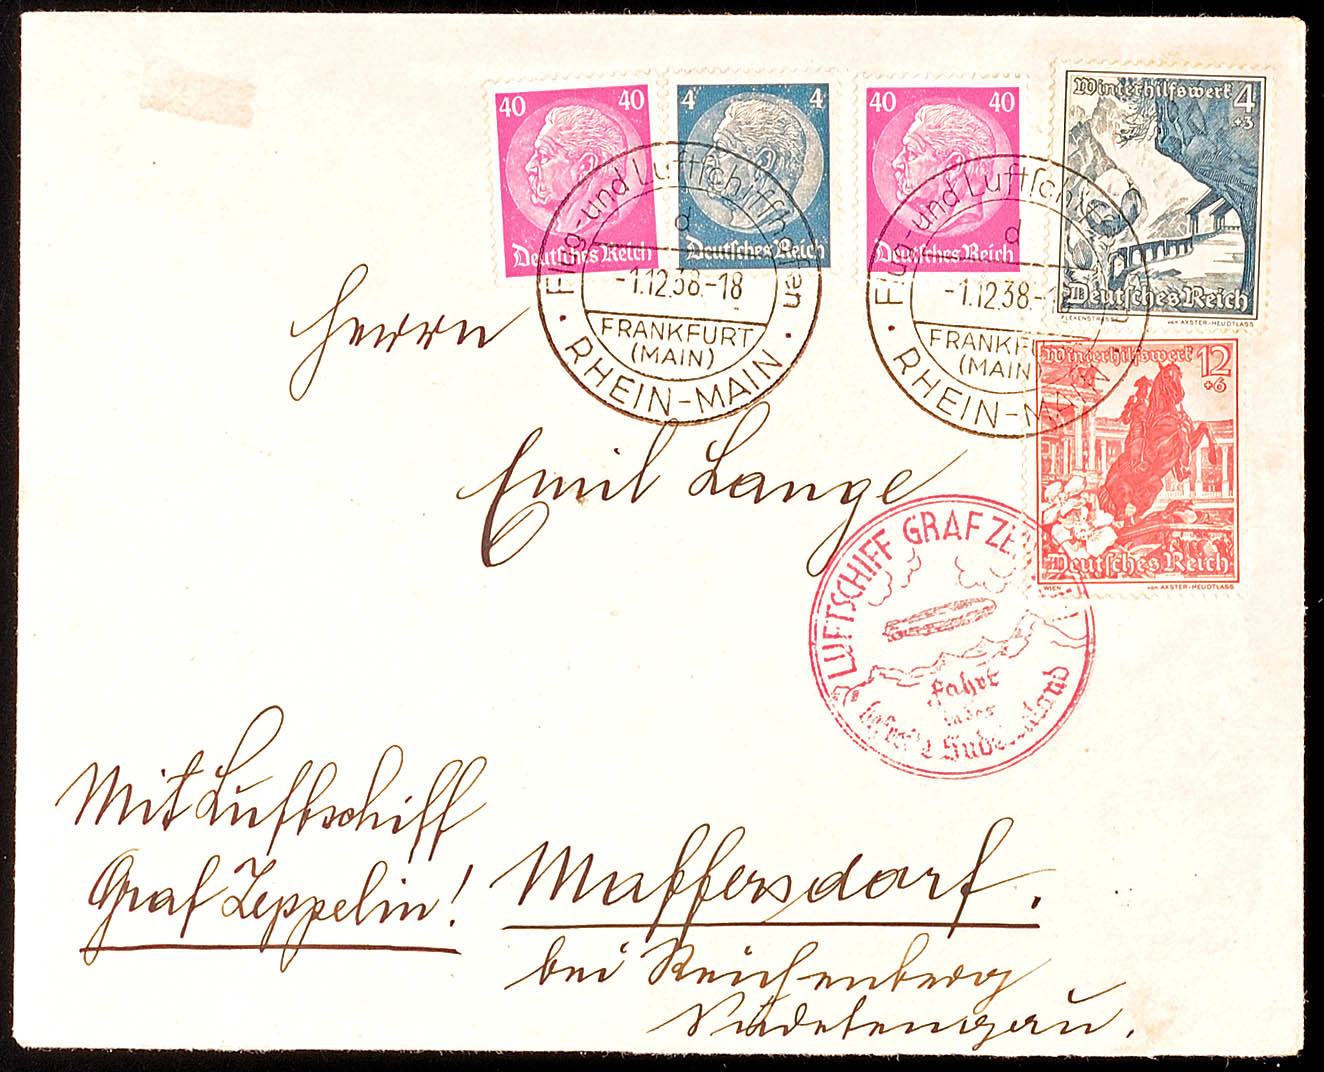 40 40
Deutsches Reich
4 4
Deutsches Reich
40 40
Deutsches Reich
Winterhilfswerk 4
+3
Deutsches Reich
von AXSTER-HEUDTLASS
Flug- und Luftschiffhafen
d
-1.12.38.-18
FRANKFURT
(MAIN)
RHEIN-MAIN
Flug- und Luftschiff
d
-1.12.38.-1
FRANKFU
(MAIN)
RHEIN-MAIN
Winterhilfswerk 12
+6
Deutsches Reich
WIEN von AXSTER-HEUDTLASS
Herrn
Emil Lange
LUFTSCHIFF GRAF ZE
Fahrt
in das
befreite Sudetenland
Mit Luftschiff
Graf Zeppelin!
Maffersdorf.
bei Reichenberg
Sudetengau.